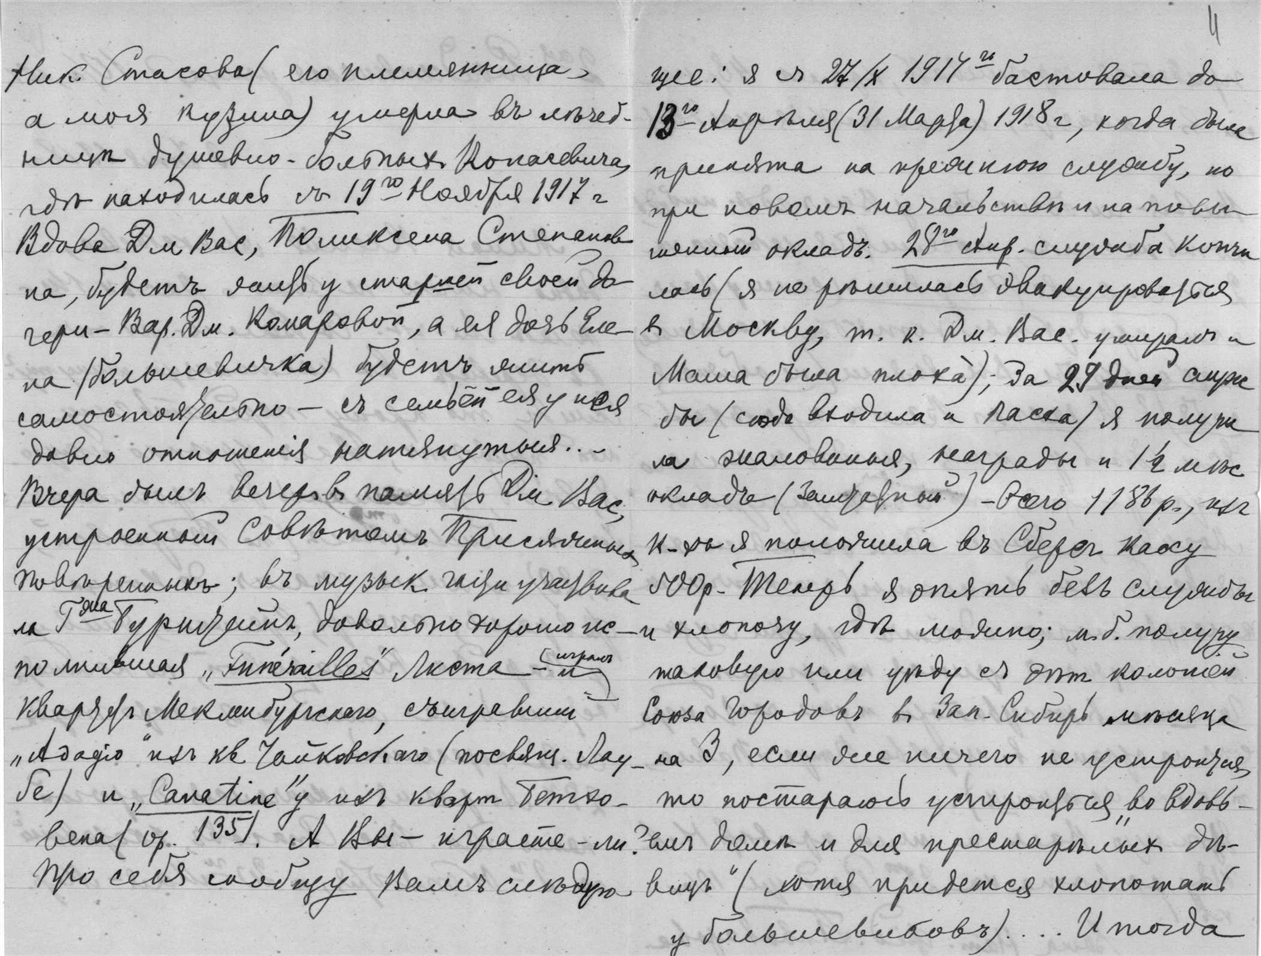 Ник. Стасова (его племянница,
а моя кузина) умерла въ лѣчеб-
ницѣ душевно-больныхъ Копасевича,
гдѣ находилась съ 19го Ноября 1917 г
Вдова Дм Вас, Поликсена Степанов-
на, будетъ жить у старшей своей до-
чери – Вар. Дм. Комаровой, а ея дочь Еле-
на (большевичка) будетъ жить
самостоятельно – съ семьёй ея у нея
давно отношенія натянутыя...
Вчера былъ вечеръ въ память Дм Вас,
устроенный Совѣтомъ Присяжныхъ
Повѣренныхъ; въ музык. части участвова-
ла Гжа Бурштейнъ, довольно хорошо ис-
полнившая „Funérailles" Листа – и (игралъ)
Квартетъ Мекленбургскаго, съигравшій
„Adagio" изъ кв Чайковскаго (посвящ. Лау-
бе) и „Cavatine" у изъ кварт Бетхо-
вена (op. 135). А Вы – играете-ли?
Про себя сообщу Вамъ слѣдую
11
щее: я съ 27/X 1917го бастовала до
13го Апрѣля (31 Марта) 1918 г, когда была
принята на прежнюю службу, но
при новомъ начальствѣ и на повы-
шенный окладъ. 28го Апр. служба кончи
лась (я не рѣшилась эвакуироваться
въ Москву, т. к. Дм. Вас. умиралъ и
Маша была плоха); За 29 дней служ
бы (сюда входила и Пасха) я получи
ла жалованья, награды и 1½ мѣс
оклада (заштатный) – всего 1186 р., изъ
к-хъ я положила въ Сберег кассу
500р. – Теперь я опять безъ службы
и хлопочу, гдѣ можно; м. б. получу
таковую или уѣду съ дѣт колоніей
Союза Городовъ въ Зап. Сибирь мѣсяца
на 3, если же ничего не устроится,
то постараюсь устроиться „во вдовь-
емъ домѣ и для престарѣлыхъ дѣ-
вицъ" (хотя придется хлопотать
у большевиковъ).... И тогда